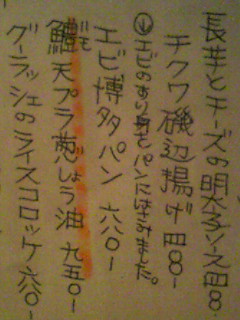 長芋とチーズの明太子ソース 四八〇-
チクワ磯辺揚げ 四八〇-
エビのすり身をパンにはさみました。
エビ博多パン 六八〇-
鱧天プラ葱しょう油 九五〇-
グーラッシュのライスコロッケ 六八〇-